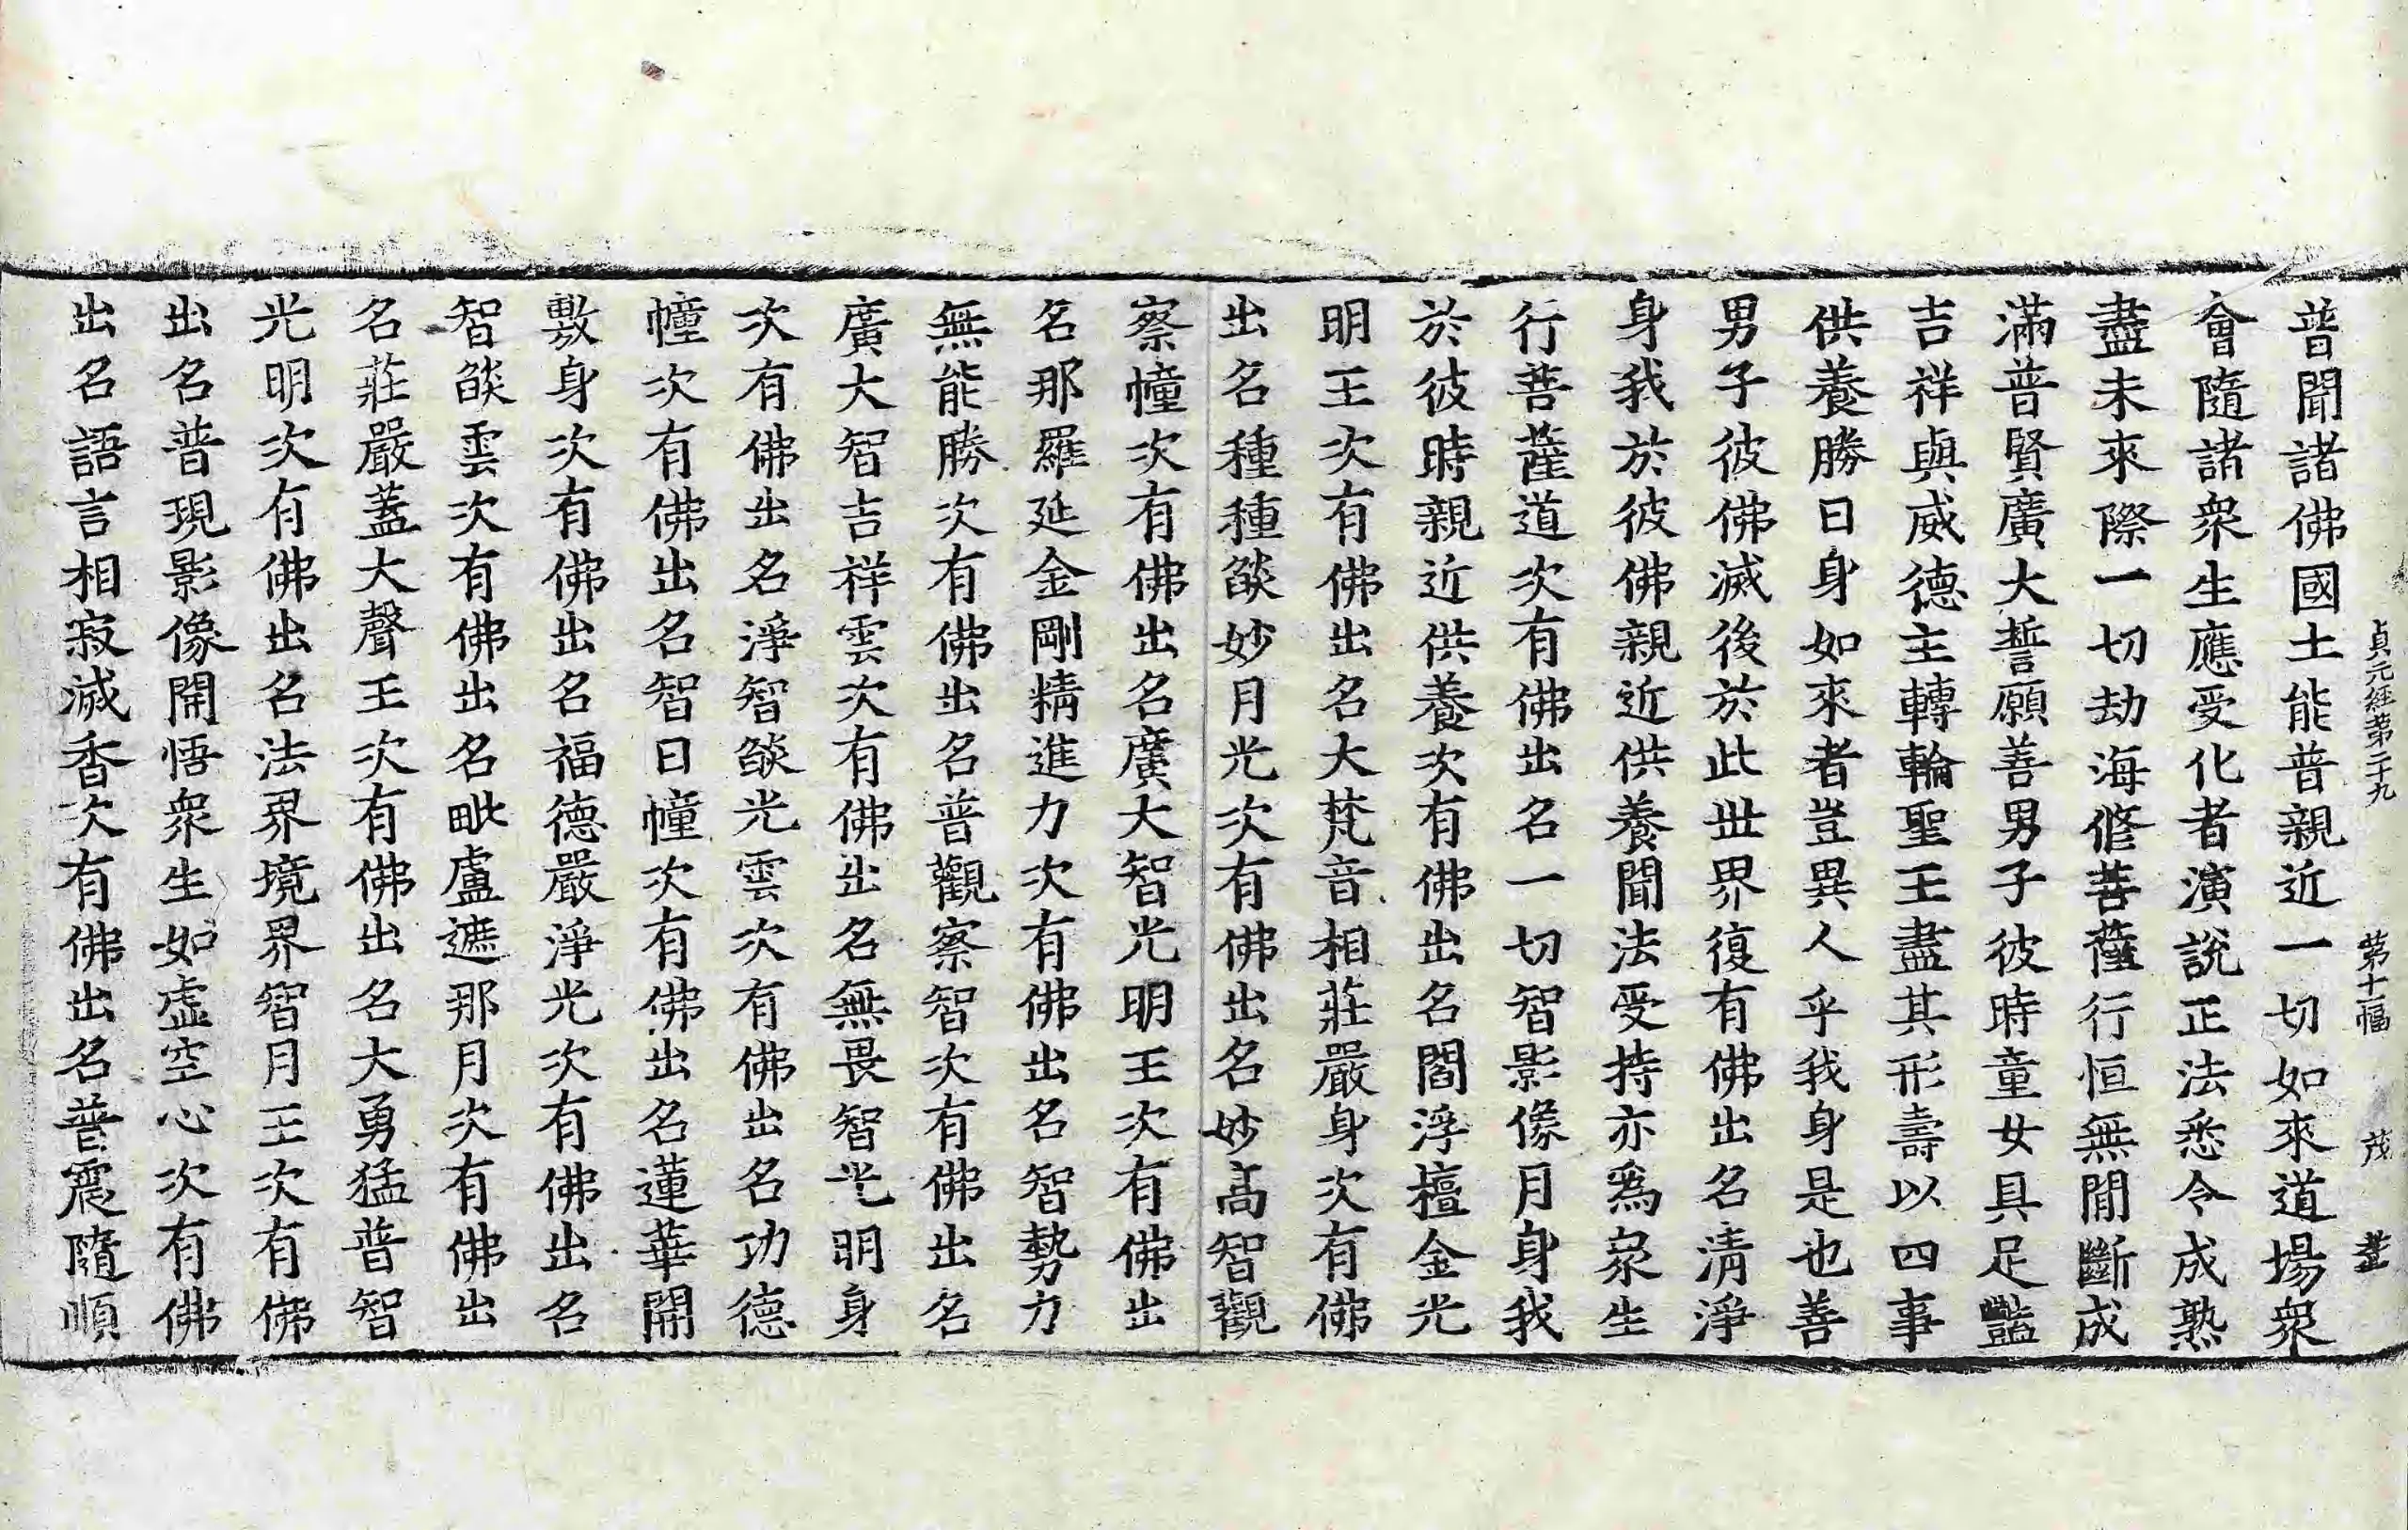 貞元經第二十九 第十幅 茂
普聞諸佛國土能普親近一切如來道場衆
會隨諸衆生應受化者演說正法悉令成熟
盡未來際一切劫海修菩薩行恒無間斷成
滿普賢廣大誓願善男子彼時童女具足豔
吉祥與威德主轉輪聖王盡其形壽以四事
供養勝日身如來者豈異人乎我身是也善
男子彼佛滅後於此世界復有佛出名清淨
身我於彼佛親近供養聞法受持亦爲衆生
行菩薩道次有佛出名一切智影像月身我
於彼時親近供養次有佛出名閻浮檀金光
明王次有佛出名大梵音相莊嚴身次有佛
出名種種燄妙月光次有佛出名妙高智觀
察幢次有佛出名廣大智光明王次有佛出
名那羅延金剛精進力次有佛出名智勢力
無能勝次有佛出名普觀察智次有佛出名
廣大智吉祥雲次有佛出名無畏智光明身
次有佛出名淨智燄光雲次有佛出名功德
幢次有佛出名智日幢次有佛出名蓮華開
敷身次有佛出名福德嚴淨光次有佛出名
智燄雲次有佛出名毗盧遮那月次有佛出
名莊嚴蓋大聲王次有佛出名大勇猛普智
光明次有佛出名法界境界智月王次有佛
出名普現影像開悟衆生如虛空心次有佛
出名語言相寂滅香次有佛出名普震隨順